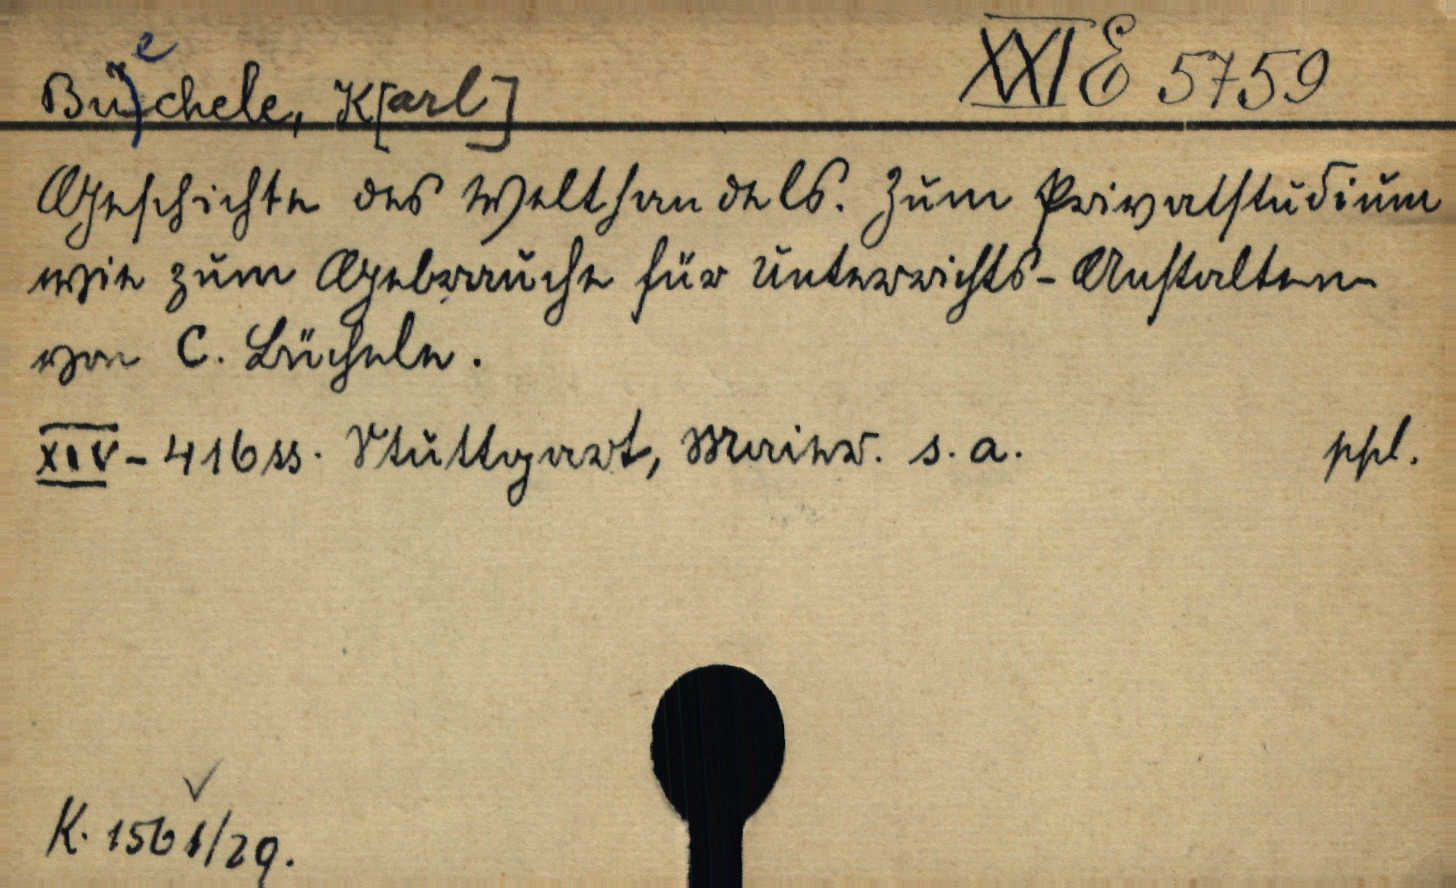 XXI E 5759
Bü)echele, K[arl]
Geschichte des Welthandels. Zum Privatstudium
wie zum Gebrauche für Unterrichts-Anstalten
von C. Büchele.
XIV-416 ss. Stuttgart, Maier. s. a. ppl.
K. 1561/29.